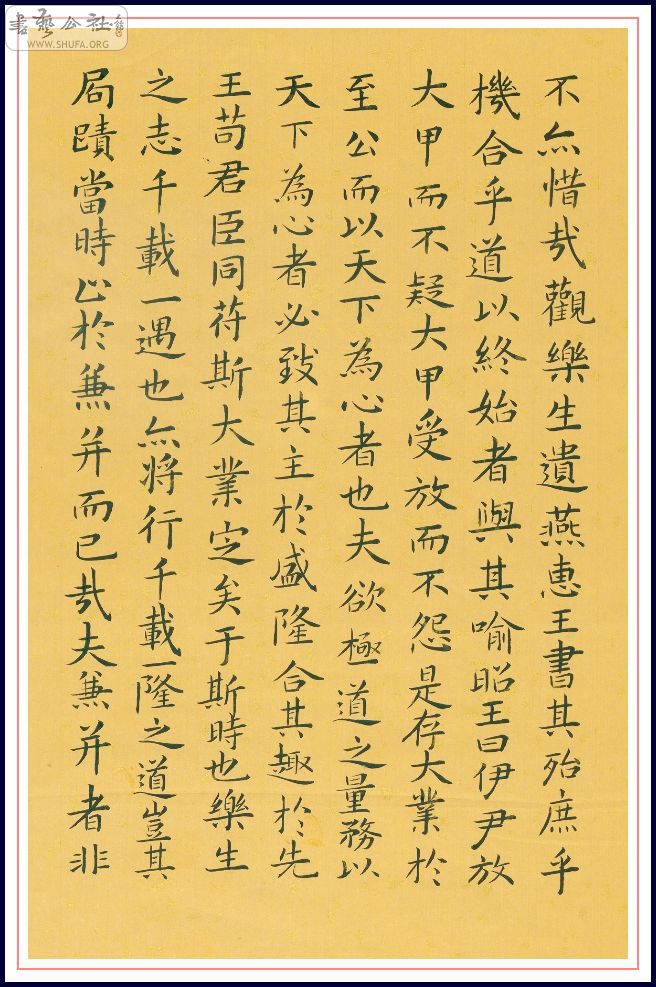 書藝公社
WWW.SHUFA.ORG
不亦惜哉觀樂生遺燕惠王書其殆庶乎
機合乎道以終始者與其喻昭王曰伊尹放
大甲而不疑大甲受放而不怨是存大業於
至公而以天下為心者也夫欲極道之量務以
天下為心者必致其主於盛隆合其趣於先
王苟君臣同苻斯大業定矣于斯時也樂生
之志千載一遇也亦將行千載一隆之道豈其
局蹟當時止於兼并而已哉夫兼并者非